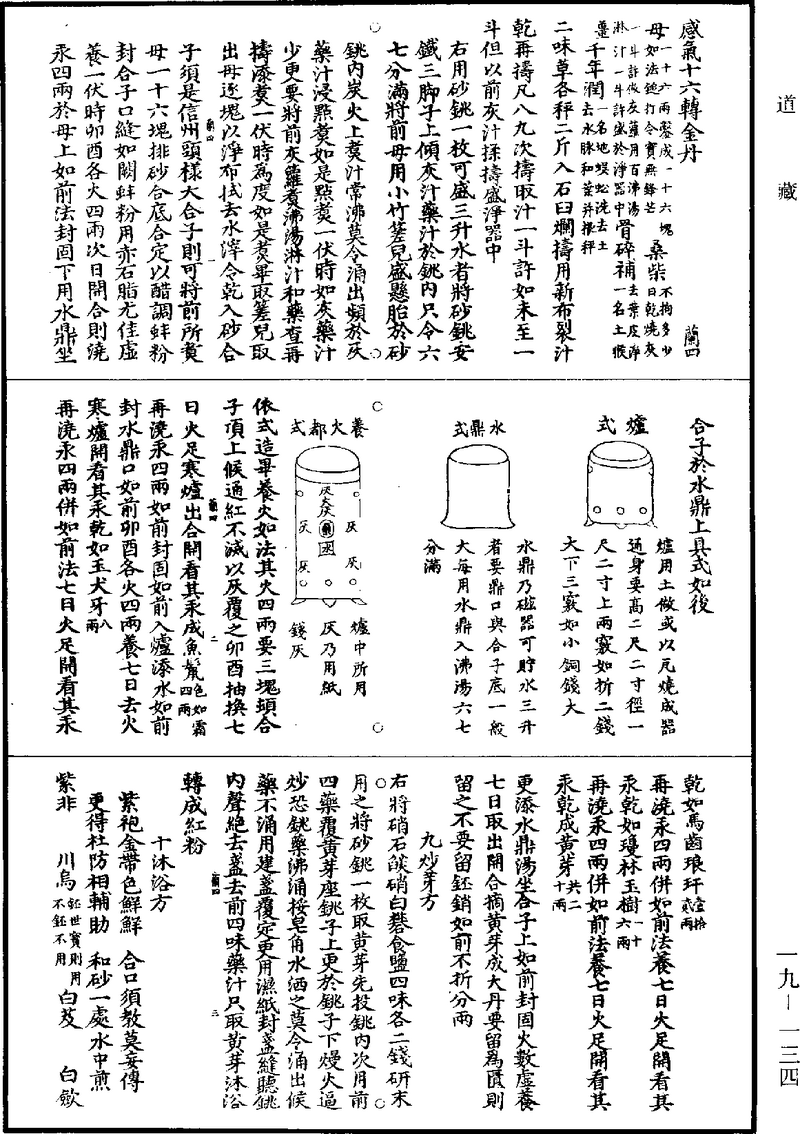 道藏
感氣十六轉金丹
蘭四
母一十六兩鑿成一十六塊如法鎚打令實無鋒芒桑柴不拘多少日乾燒灰
一斗許做灰蘿用百沸湯淋汁一斗許盛於淨器中骨碎補去葉皮淨一名土猴
薑千年潤一名地蜈蚣洗去土去水脉和葉并根秤
二味草各秤二斤入石臼爛擣用新布裂汁
乾再擣凡八九次擣取汁一斗許如未至一
斗但以前灰汁揉擣盛淨器中
右用砂銚一枚可盛三升水者將砂銚安
鐵三脚子上傾灰汁藥汁於銚內只令六
七分滿將前母用小竹䇹兒盛懸胎於砂
銚內炭火上煑汁常沸莫令涌出頻於灰
藥汁浸點煑如是點煑一伏時如灰藥汁
少更要將前灰蘿煑沸湯淋汁和藥查再
擣添煑一伏時為度如是煑畢取䇹兒取
出母逐塊以淨布拭去水滓令乾入砂合
子須是信州頭樣大合子則可將前所煑
母一十六塊排砂合底合定以醋調蚌粉
封合子口縫如闕蚌粉用赤石脂尤佳虛
養一伏時卯酉各火四兩次日開合則澆
汞四兩於母上如前法封固下用水鼎坐
合子於水鼎上具式如後
爐式
爐用土做或以瓦燒成器
通身要高二尺二寸徑一
尺二寸上兩竅如折二錢
大下三竅如小銅錢大
水鼎式
水鼎乃磁器可貯水三升
者要鼎口與合子底一般
大每用水鼎入沸湯六七
分滿
養火都大式
灰 灰 灰 灰 灰
爐中所用
灰乃用紙
錢灰
依式造畢養火如法其火四兩要三塊頭合
子頂上候通紅不滅以灰覆之卯酉抽換七
日火足寒爐出合開看其汞成魚鬛色如霜四兩
再澆汞四兩如前封固如前入爐添水如前
封水鼎口如前卯酉各火四兩養七日去火
寒爐開看其汞乾如玉犬牙八兩
再澆汞四兩併如前法七日火足開看其汞
乾如馬齒琅玕壹拾貳兩
再澆汞四兩併如前法養七日火足開看其
汞乾如瓊林玉樹一十六兩
再澆汞四兩併如前法養七日火足開看其
汞乾成黃芽共二十兩
更添水鼎湯坐合子上如前封固火數虛養
七日取出開合摘黃芽成大丹要留為匱則
留之不要留鈺銷如前不折分兩
九炒芽方
右將硝石燄硝白礬食鹽四味各二錢研末
用之將砂銚一枚取黃芽先投銚內次用前
四藥覆黃芽座銚子上更於銚子下熳火逼
炒恐銚藥沸涌桜皂角水洒之莫令涌出候
藥不涌用建盞覆定更用濕紙封盞縫聽銚
內聲絕去盞去前四味藥汁只取黃芽沐浴
轉成紅粉
十沐浴方
紫袍金帶色鮮鮮 合口須教莫妄傳
更得杜防相輔助 和砂一處水中煎
紫非 川烏鈺世寶則用不鈺不用 白芨 白歛
一九—一三四